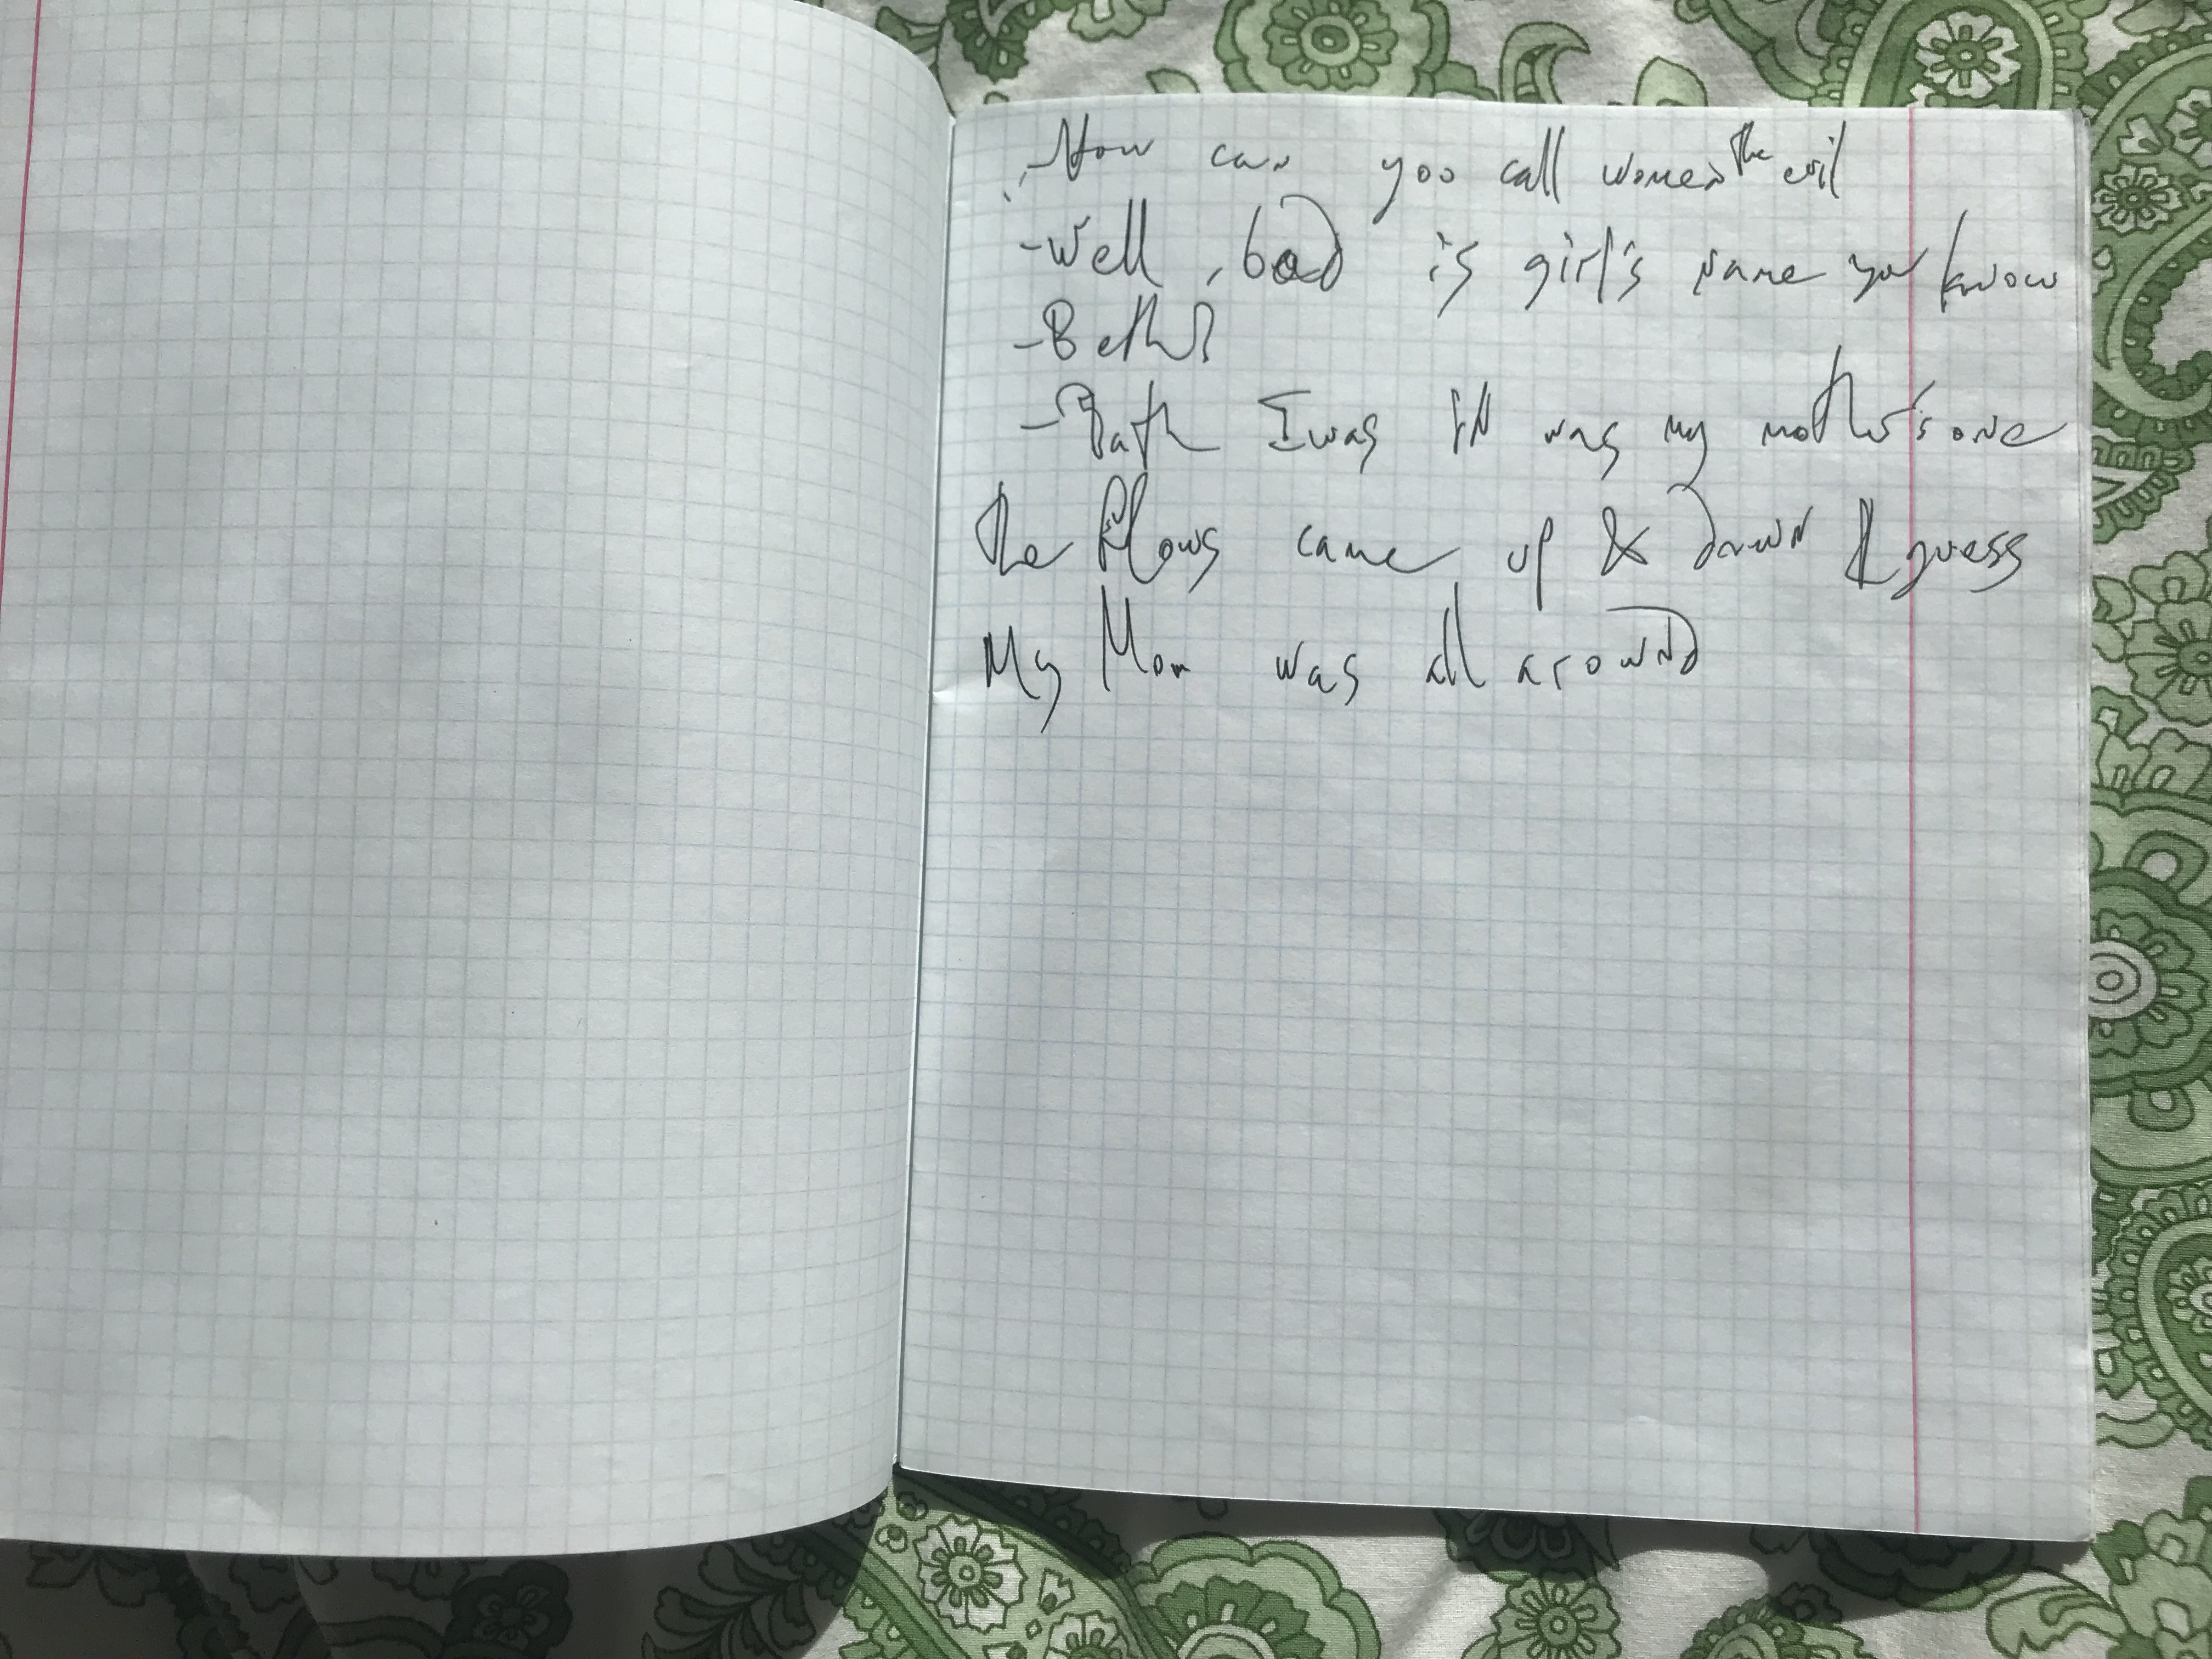 "How can you call women the evil
- Well, bad is girl's name you know
- Beth!
- Bath I was in was my mother's one
The flows came up & down I guess
My Mom was all around